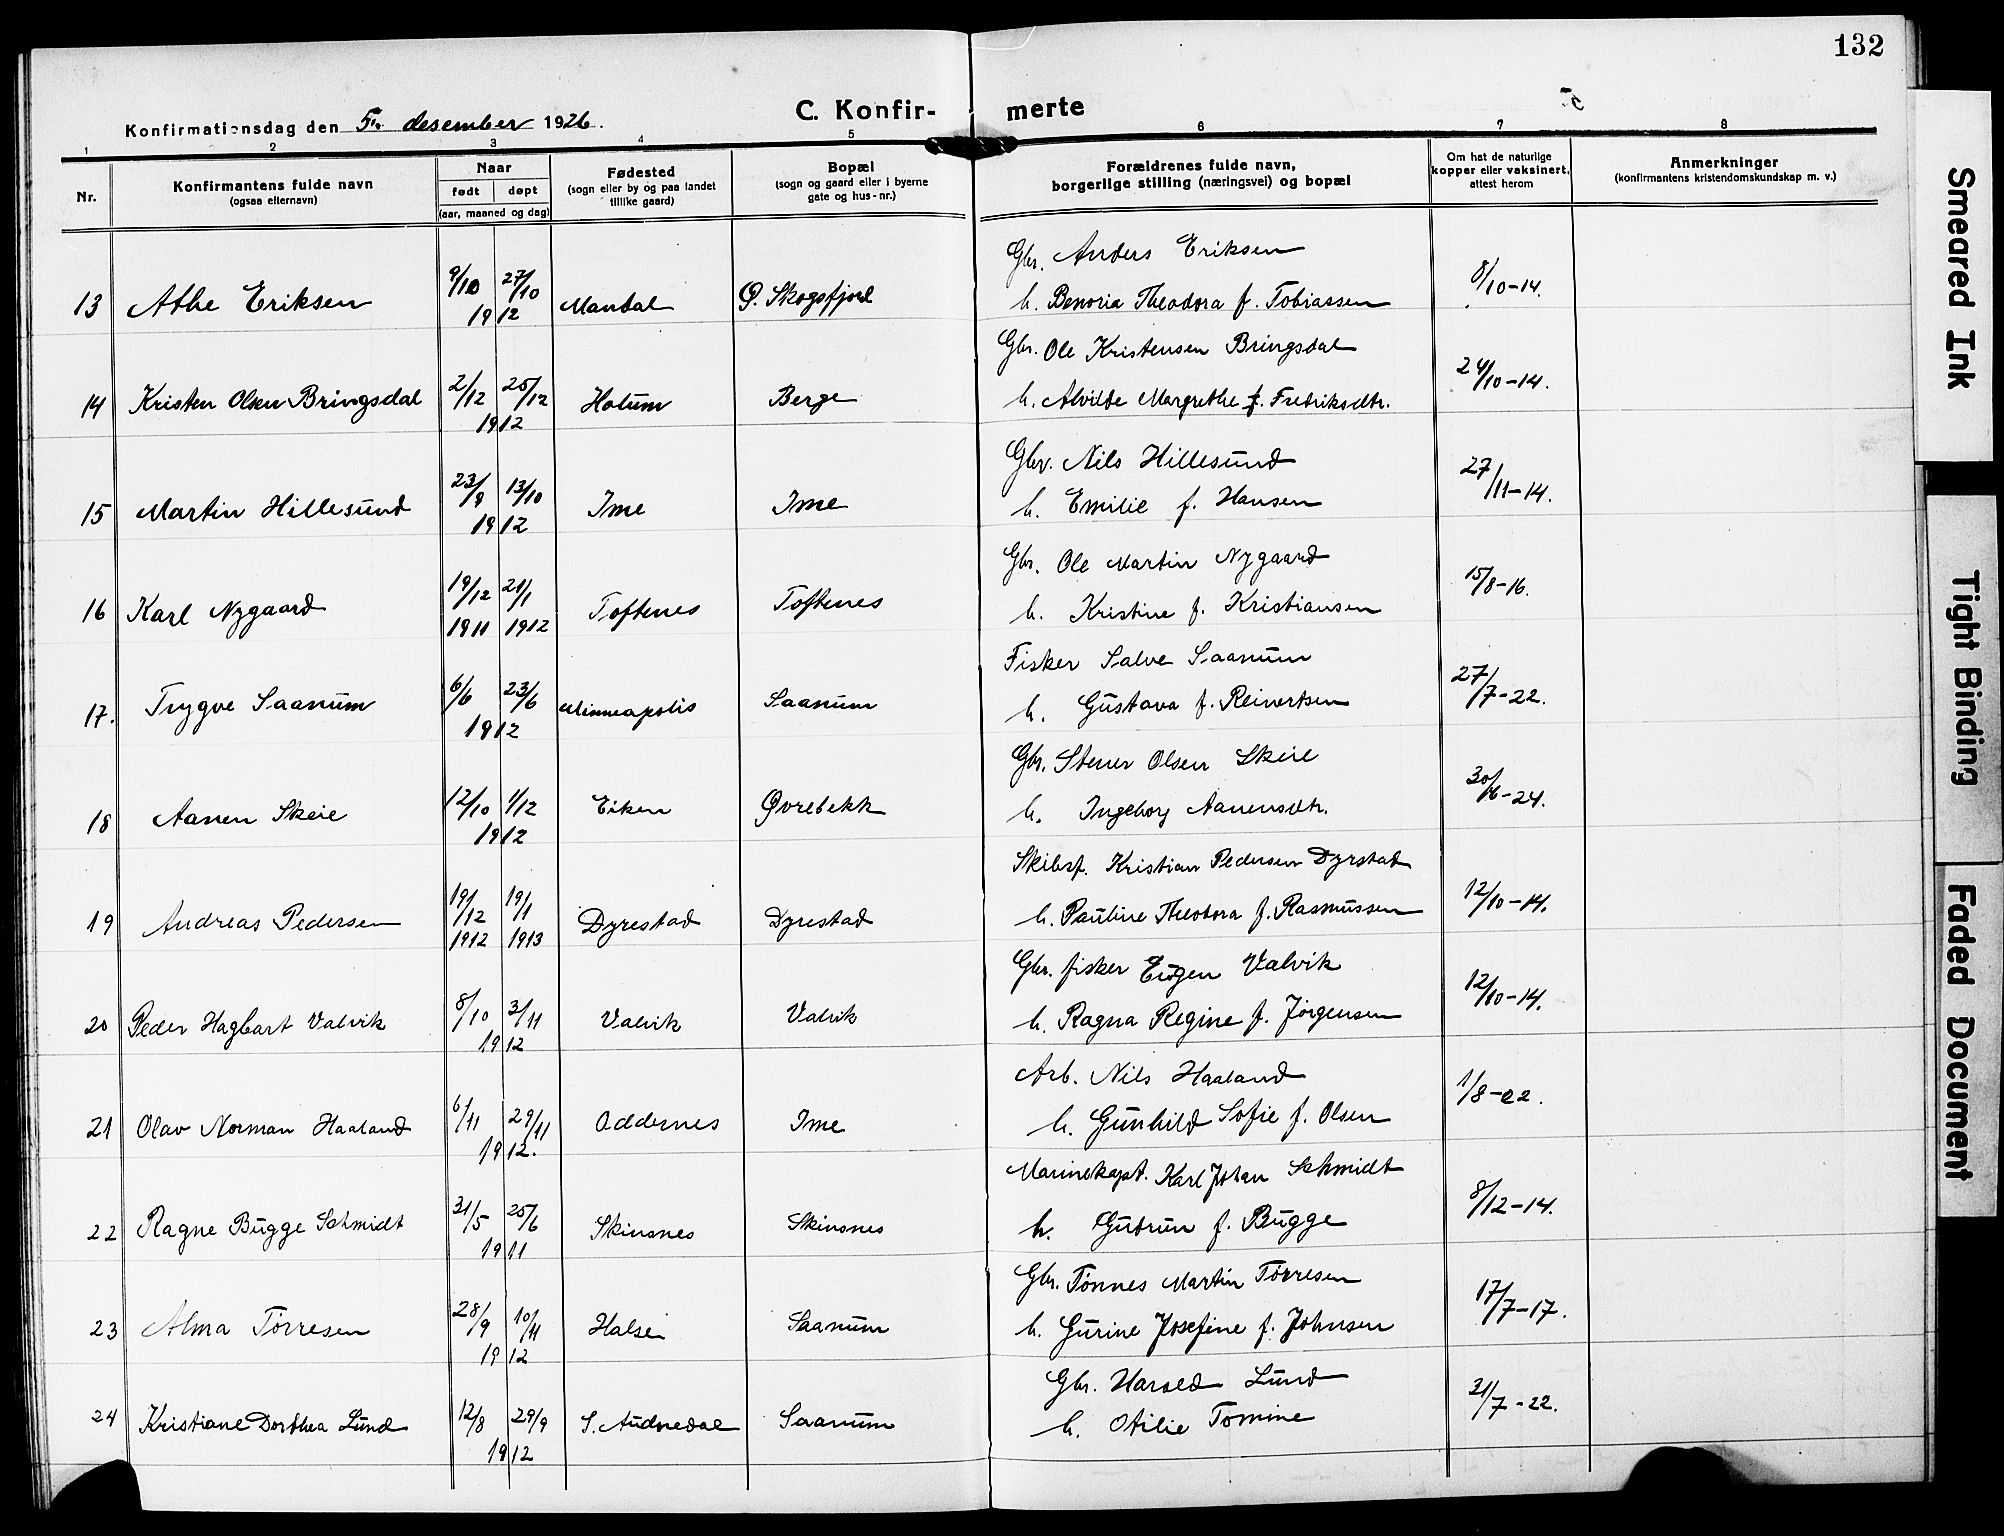 132
Konfirmationsdag den 5. desember 1926.
C. Konfir- merte
1 2 3 4 5 6 7 8
Nr.
Konfirmantens fulde navn
(ogsaa efternavn)
Naar
født døpt
(aar, maaned og dag)
Fødested
(sogn eller by og paa landet
tillike gaard)
Bopæl
(sogn og gaard eller i byerne
gate og hus-nr.)
Forældrenes fulde navn,
borgerlige stilling (næringsvei) og bopæl
Om hat de naturlige
kopper eller vaksinert,
attest herom
Anmerkninger
(konfirmantens kristendomskundskap m. v.)
Gbr. Anders Eriksen
13 Athe Eriksen 9/10 27/10 Mandal Ø. Skogsfjord h. Benoria Theodora f. Tobiassen 8/10-14.
19 12
Gbr. Ole Kristensen Bringsdal
14 Kristen Olsen Bringsdal 2/12 25/12 Holum Berge h. Alvilde Margrethe f. Fredriksdtr. 24/10-14.
19 12
Gbr. Nils Hillesund
15 Martin Hillesund 23/8 13/10 Ime Ime h. Emilie f. Hansen 27/11-14.
19 12
Gbr. Ole Martin Nygaard
16 Karl Nygaard 19/12 21/1 Toftenes Toftenes h. Kristine f. Kristiansen 15/8-16.
1911 1912
Fisker Salve Saanum
17. Trygve Saanum 6/6 23/6 Minneapolis Saanum h. Gustava f. Reinertsen 27/7-22.
19 12
Gbr. Stener Olsen Skeie
18 Aanen Skeie 12/10 1/12 Eiken Øvrebekk h. Ingeborg Aanensdtr. 30/6-24.
19 12
Skibsf. Kristian Pedersen Dyrstad
19 Andreas Pedersen 19/12 19/1 Dyrestad Dyrestad h. Pauline Theodora f. Rasmussen 12/10-14.
1912 1913
Gbr. fisker Eugen Valvik
20 Peder Hagbart Valvik 8/10 3/11 Valvik Valvik h. Ragna Regine f. Jørgensen 12/10-14.
19 12
Arb. Nils Haaland
21 Olav Norman Haaland 6/11 29/11 Oddernes Ime h. Gunhild Sofie f. Olsen 1/8-22.
19 12.
Marinekapt. Karl Johan Schmidt
22 Ragne Bugge Schmidt 31/5 25/6 Skinsnes Skinsnes h. Gudrun f. Bugge 8/12-14.
19 11
Gbr. Tønnes Martin Tørresen
23 Alma Tørresen 28/9 10/11 Halse Saanum h. Gurine Josefine f. Johnsen 17/7-17.
19 12
Gbr. Harald Lund
24 Kristiane Dorthea Lund 12/8 29/9 S. Audnedal Saanum h. Otilie Tomine 31/7-22.
19 12
Smeared Ink
Tight Binding
Faded Document